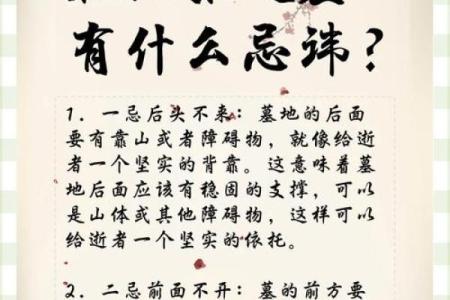 有什么忌讳?
1. 一忌后头不来：墓地的后面
要有靠山或者障碍物，就像给逝
者一个坚实的背靠。这意味着墓
地后面应该有稳固的支撑，可以
是山体或其他障碍物，这样可以
给逝者一个坚实的依托。
2. 二忌前面不开：墓的前方要